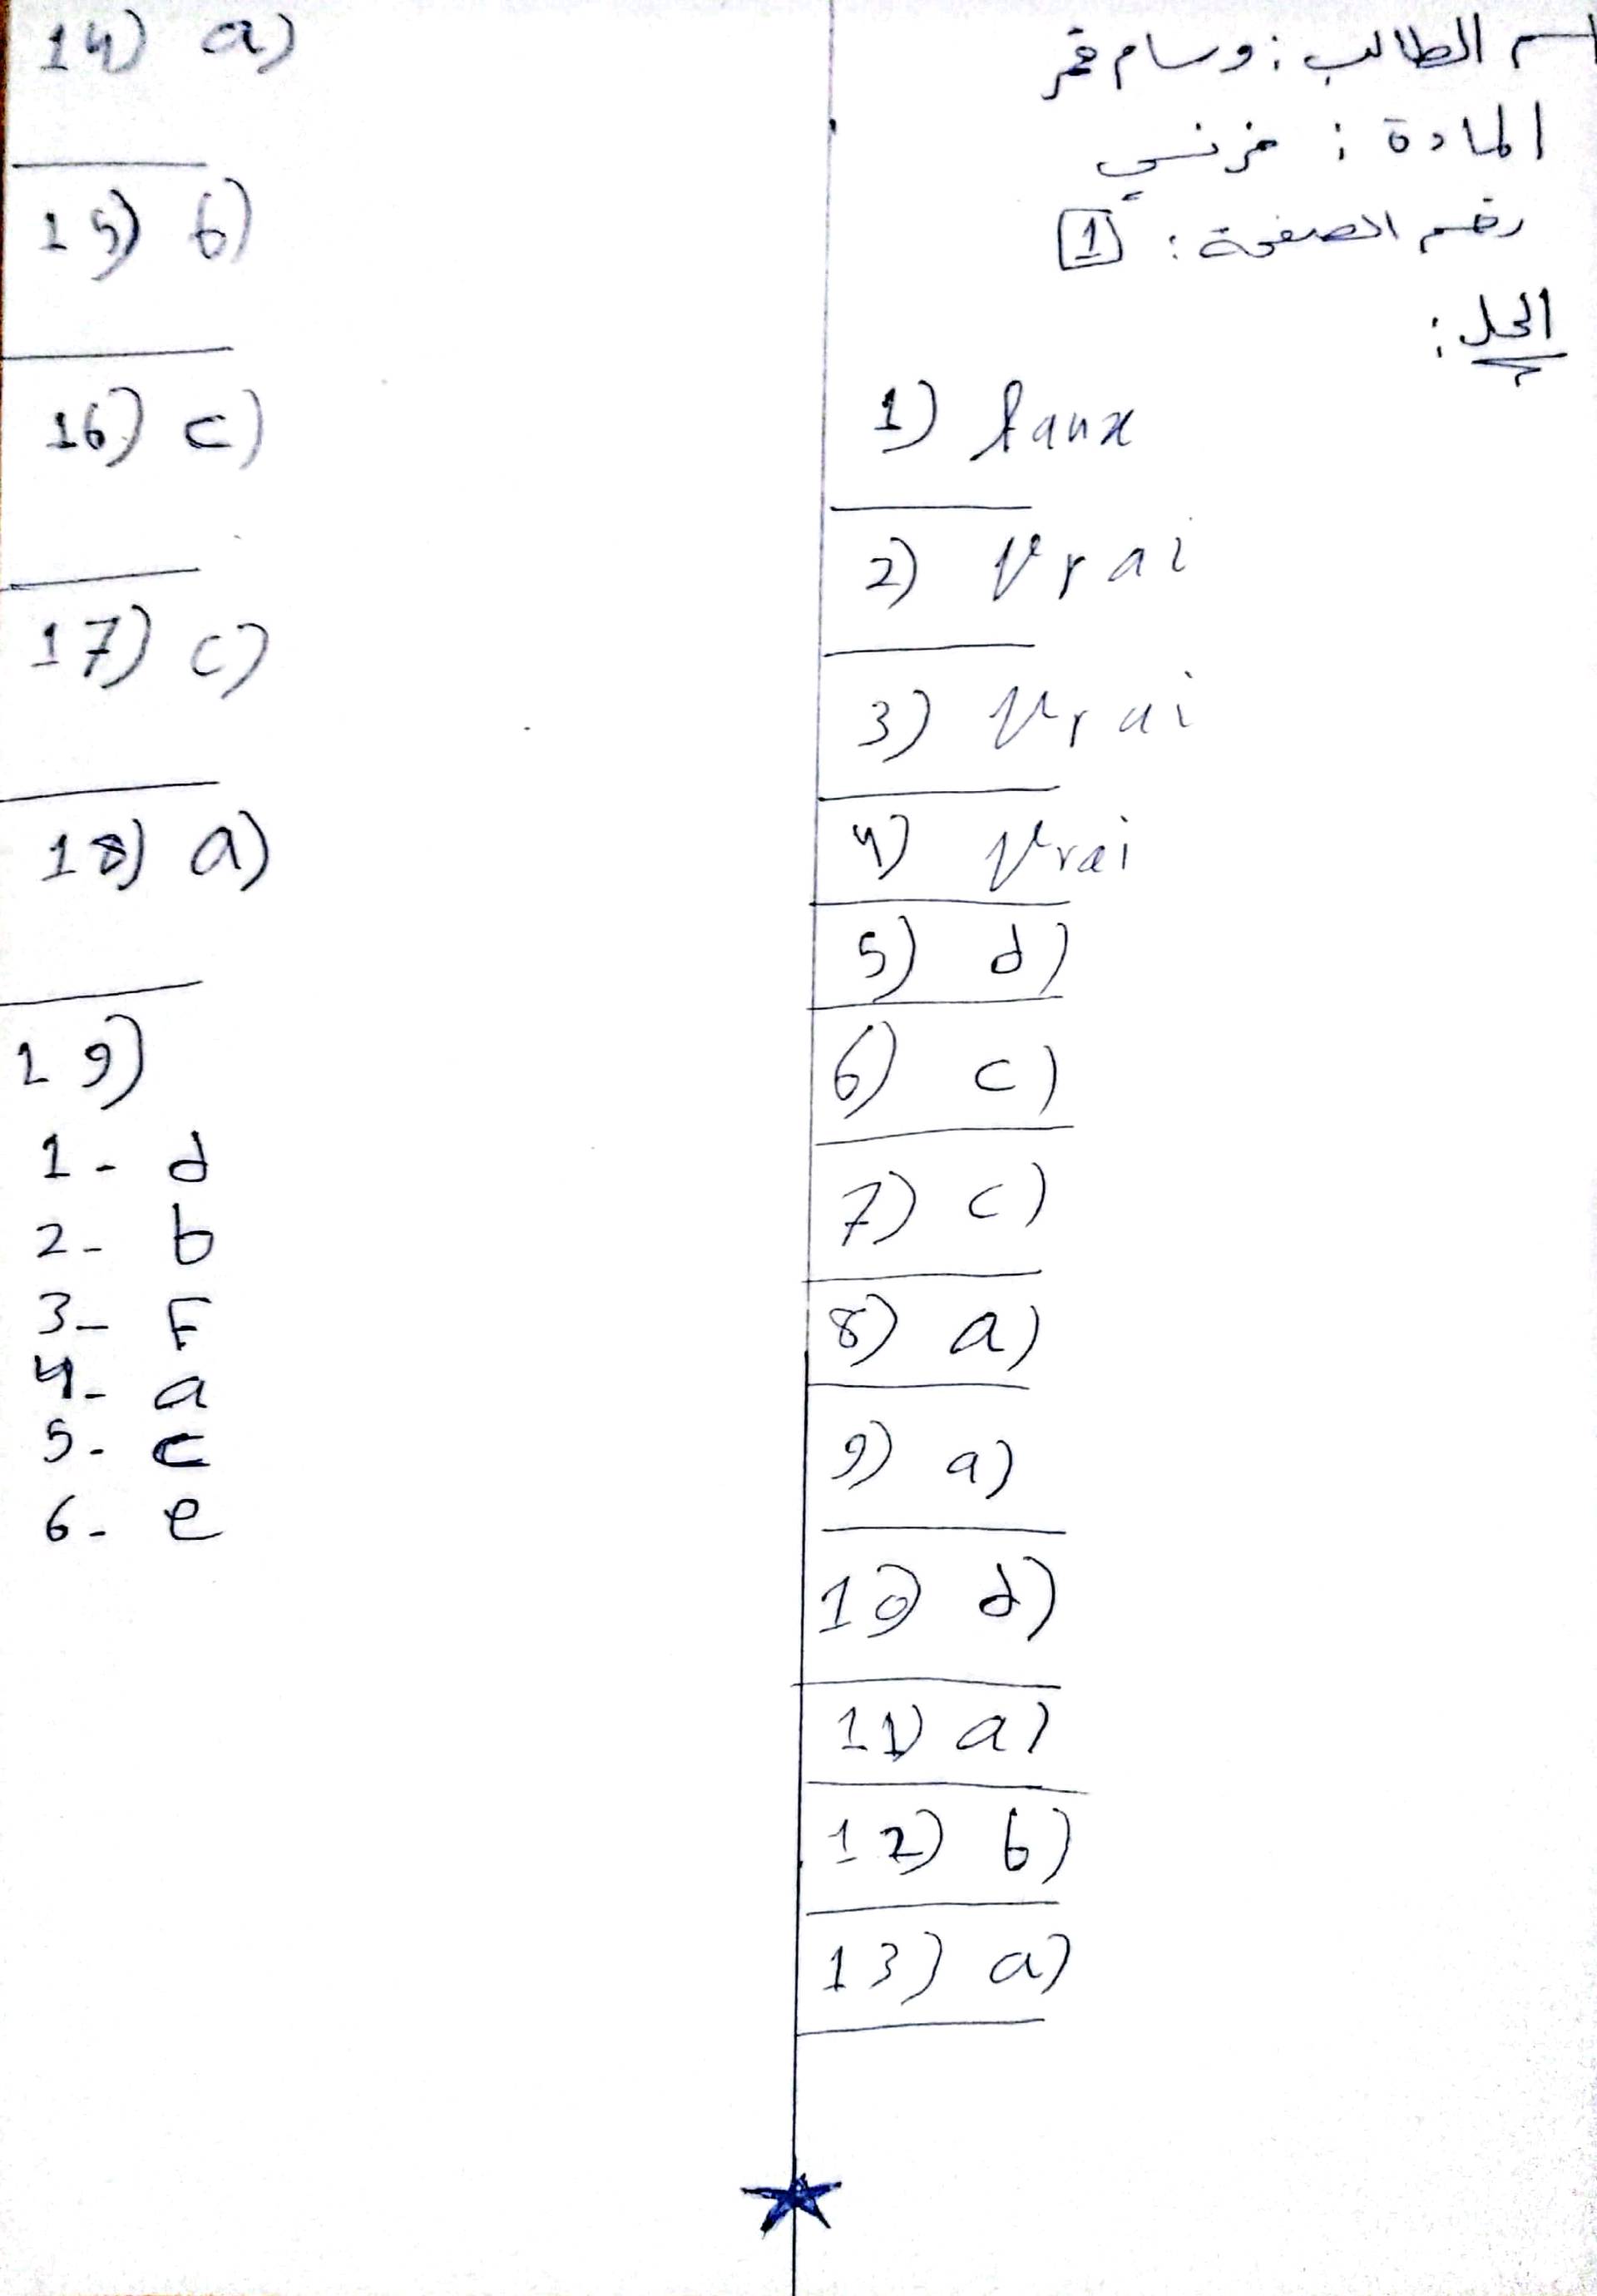 اسم الطالب : وسام قمر
المادة : فرنسي
رقم الصفحة : 1
الحل :
1) faux
2) Vrai
3) Vrai
4) Vrai
5) d)
6) c)
7) c)
8) a)
9) a)
10) d)
11) a)
12) b)
13) a)
14) a)
15) b)
16) c)
17) c)
18) a)
19)
1- d
2- b
3- F
4- a
5- c
6- e